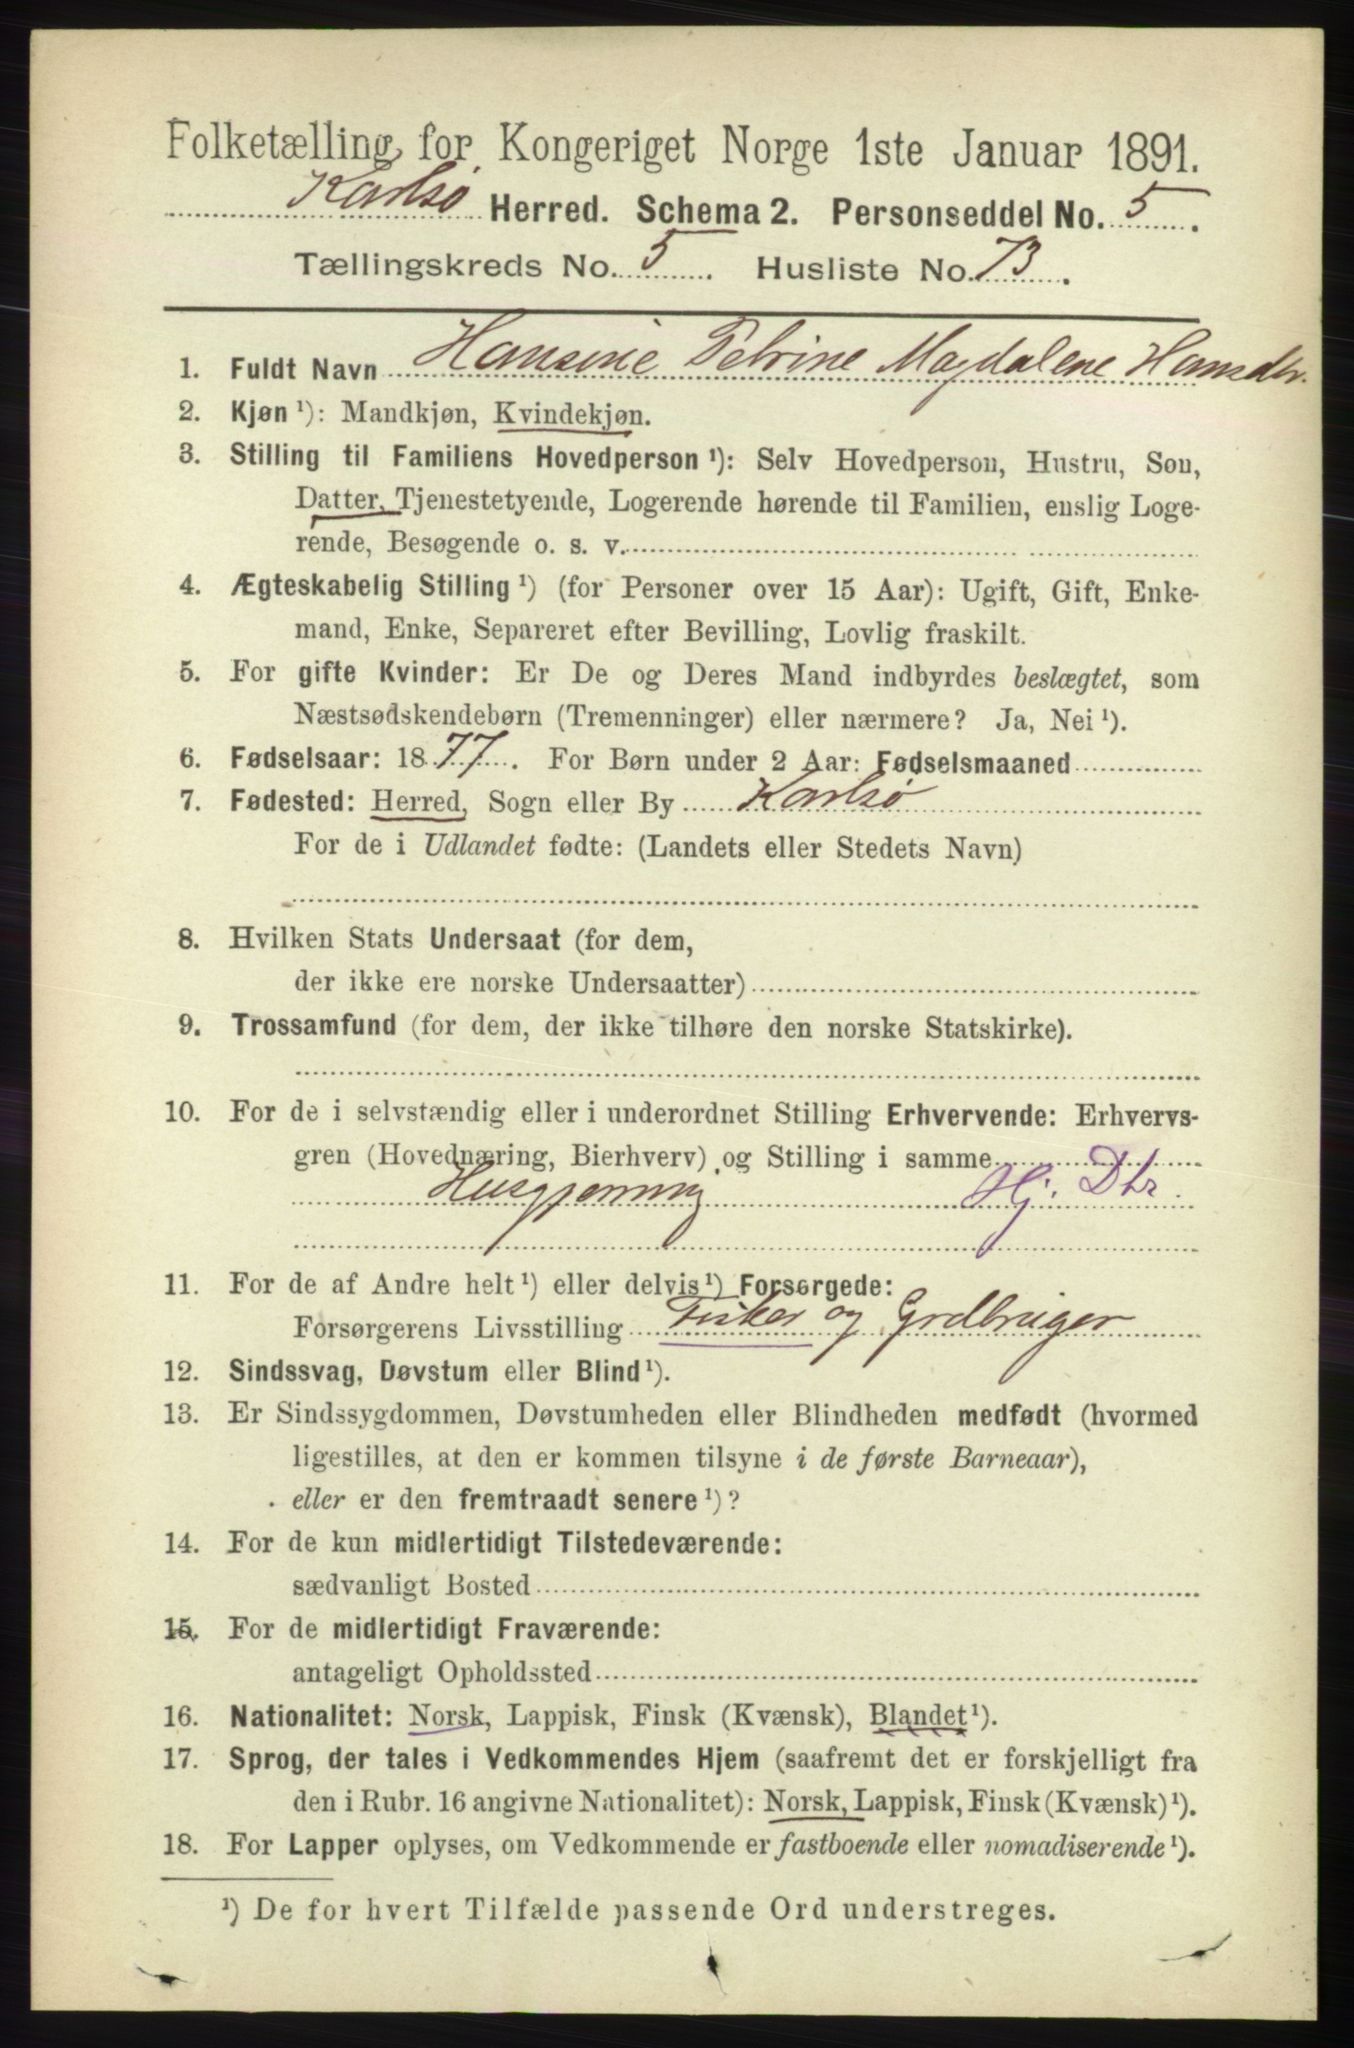 Folketælling for Kongeriget Norge 1ste Januar 1891.
Karlsø Herred. Schema 2. Personseddel No. 5.
Tællingskreds No. 5. Husliste No. 73.
1. Fuldt Navn Hansine Petrine Magdalene Hansdtr.
2. Kjøn ¹): Mandkjøn, Kvindekjøn.
3. Stilling til Familiens Hovedperson ¹): Selv Hovedperson, Hustru, Søn,
Datter, Tjenestetyende, Logerende hørende til Familien, enslig Loge-
rende, Besøgende o. s. v.
4. Ægteskabelig Stilling ¹) (for Personer over 15 Aar): Ugift, Gift, Enke-
mand, Enke, Separeret efter Bevilling, Lovlig fraskilt.
5. For gifte Kvinder: Er De og Deres Mand indbyrdes beslægtet, som
Næstsødskendebørn (Tremenninger) eller nærmere? Ja, Nei ¹).
6. Fødselsaar: 1877. For Børn under 2 Aar: Fødselsmaaned
7. Fødested: Herred, Sogn eller By Karlsø
For de i Udlandet fødte: (Landets eller Stedets Navn)
8. Hvilken Stats Undersaat (for dem,
der ikke ere norske Undersaatter)
9. Trossamfund (for dem, der ikke tilhøre den norske Statskirke).
10. For de i selvstændig eller i underordnet Stilling Erhvervende: Erhvervs-
gren (Hovednæring, Bierhverv) og Stilling i samme
Husgjerning Hj. Dtr.
11. For de af Andre helt ¹) eller delvis ¹) Forsørgede:
Forsørgerens Livsstilling Fisker og Grdbruger
12. Sindssvag, Døvstum eller Blind ¹).
13. Er Sindssygdommen, Døvstumheden eller Blindheden medfødt (hvormed
ligestilles, at den er kommen tilsyne i de første Barneaar),
eller er den fremtraadt senere ¹)?
14. For de kun midlertidigt Tilstedeværende:
sædvanligt Bosted
15. For de midlertidigt Fraværende:
antageligt Opholdssted
16. Nationalitet: Norsk, Lappisk, Finsk (Kvænsk), Blandet ¹).
17. Sprog, der tales i Vedkommendes Hjem (saafremt det er forskjelligt fra
den i Rubr. 16 angivne Nationalitet): Norsk, Lappisk, Finsk (Kvænsk) ¹).
18. For Lapper oplyses, om Vedkommende er fastboende eller nomadiserende ¹).
¹) De for hvert Tilfælde passende Ord understreges.